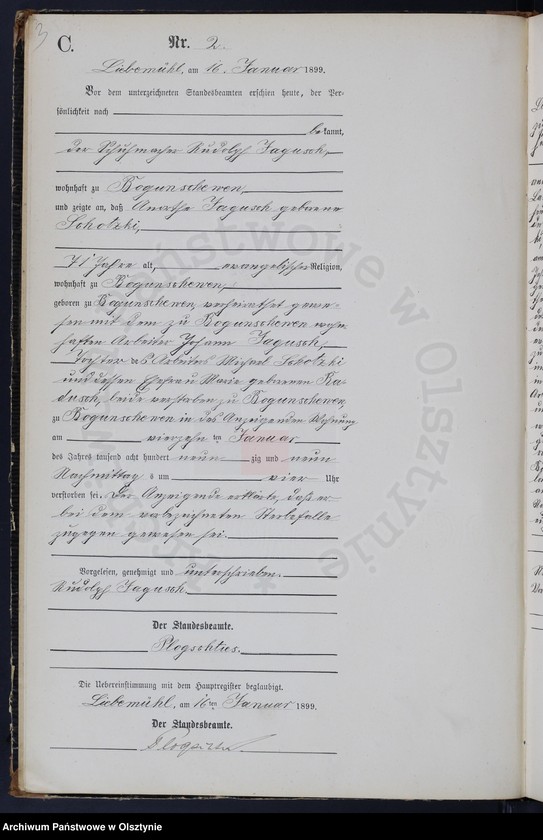 3
C.
Nr. 2.
Liebemühl, am 16. Januar 1899.
Vor dem unterzeichneten Standesbeamten erschien heute, der Per-
sönlichkeit nach
bekannt,
der Schuhmacher Rudolf Jagusch,
wohnhaft zu Bogunschewen,
und zeigte an, daß Anorthe Jagusch geborene
Schotzki,
71 Jahre alt, evangelischer Religion,
wohnhaft zu Bogunschewen,
geboren zu Bogunschewen, verheirathet gewe-
sen mit dem zu Bogunschewen wohn-
haften Arbeiter Johann Jagusch,
Tochter des Arbeiters Michael Schotzki
und dessen Ehefrau Marie geborenen Ra-
dusch, beide verstorben zu Bogunschewen,
zu Bogunschewen in des Anzeigenden Wohnung
am vierzehn ten Januar
des Jahres tausend acht hundert neun zig und neun
Nachmittag s um vier Uhr
verstorben sei. Der Anzeigende erklärte, daß er
bei dem vorbezeichneten Sterbefalle
zugegen gewesen sei.
Vorgelesen, genehmigt und unterschrieben.
Rudolf Jagusch
Der Standesbeamte.
Plogschties.
Die Uebereinstimmung mit dem Hauptregister beglaubigt.
Liebemühl, am 16ten Januar 1899.
Der Standesbeamte.
Archiwum Państwowe w Olsztynie
Archiwum Państwowe w Olsztynie